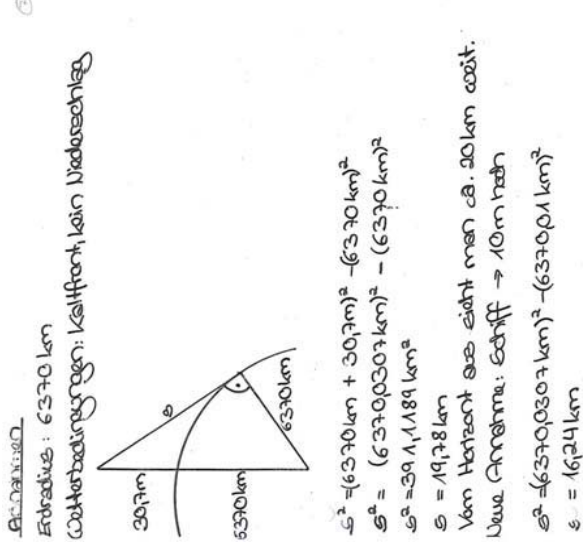 Annahmen
Erdradius: 6370 km
Wetterbedingungen: Kaltfront, kein Niederschlag
30,7m
s
6370km
6370km
s² = (6370km + 30,7m)² - (6370km)²
s² = (6370,0307km)² - (6370km)²
s² = 391,1189 km²
s = 19,78 km
Vom Horizont aus sieht man ca. 20km weit.
Neue Annahme: Schiff → 10m hoch
s² = (6370,0307km)² - (6370,01km)²
s = 16,24km